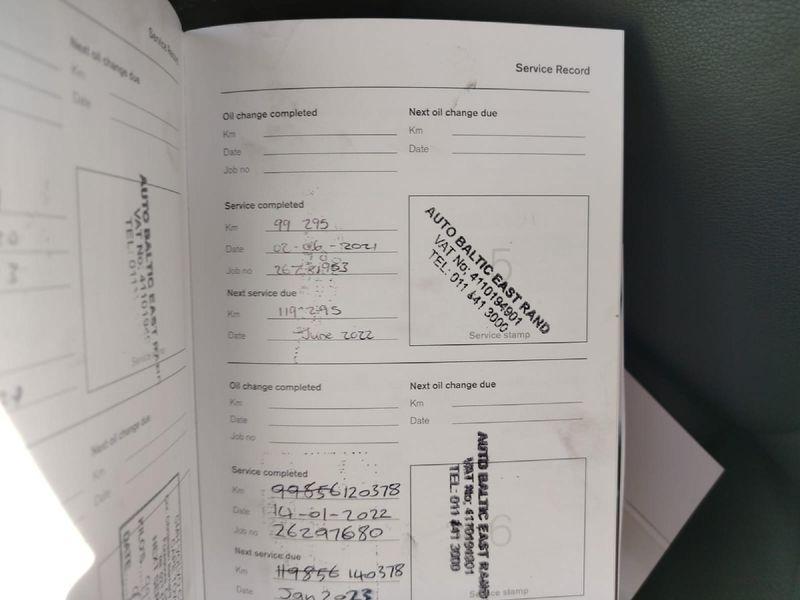 Service Record
Next oil change due
Km
Date
AUTO BALTIC EAST RAND
TEL: 011
Next oil change due
Km
Date
Service Record
Oil change completed
Km
Date
Job no
Next oil change due
Km
Date
Service completed
Km 99 295
Date 02-06-2021
Job no
Next service due
Km 119 295
Date June 2022
5
AUTO BALTIC EAST RAND
VAT No: 4110194901
TEL: 011 641 3000
Service stamp
Oil change completed
Km
Date
Job no
Next oil change due
Km
Date
Service completed
Km 99856 120378
Date 14-01-2022
Job no 26297680
Next service due
Km 119856 140378
Date Jan 2023
6
AUTO BALTIC EAST RAND
VAT No: 4110194901
TEL: 011 641 3000
Service stamp